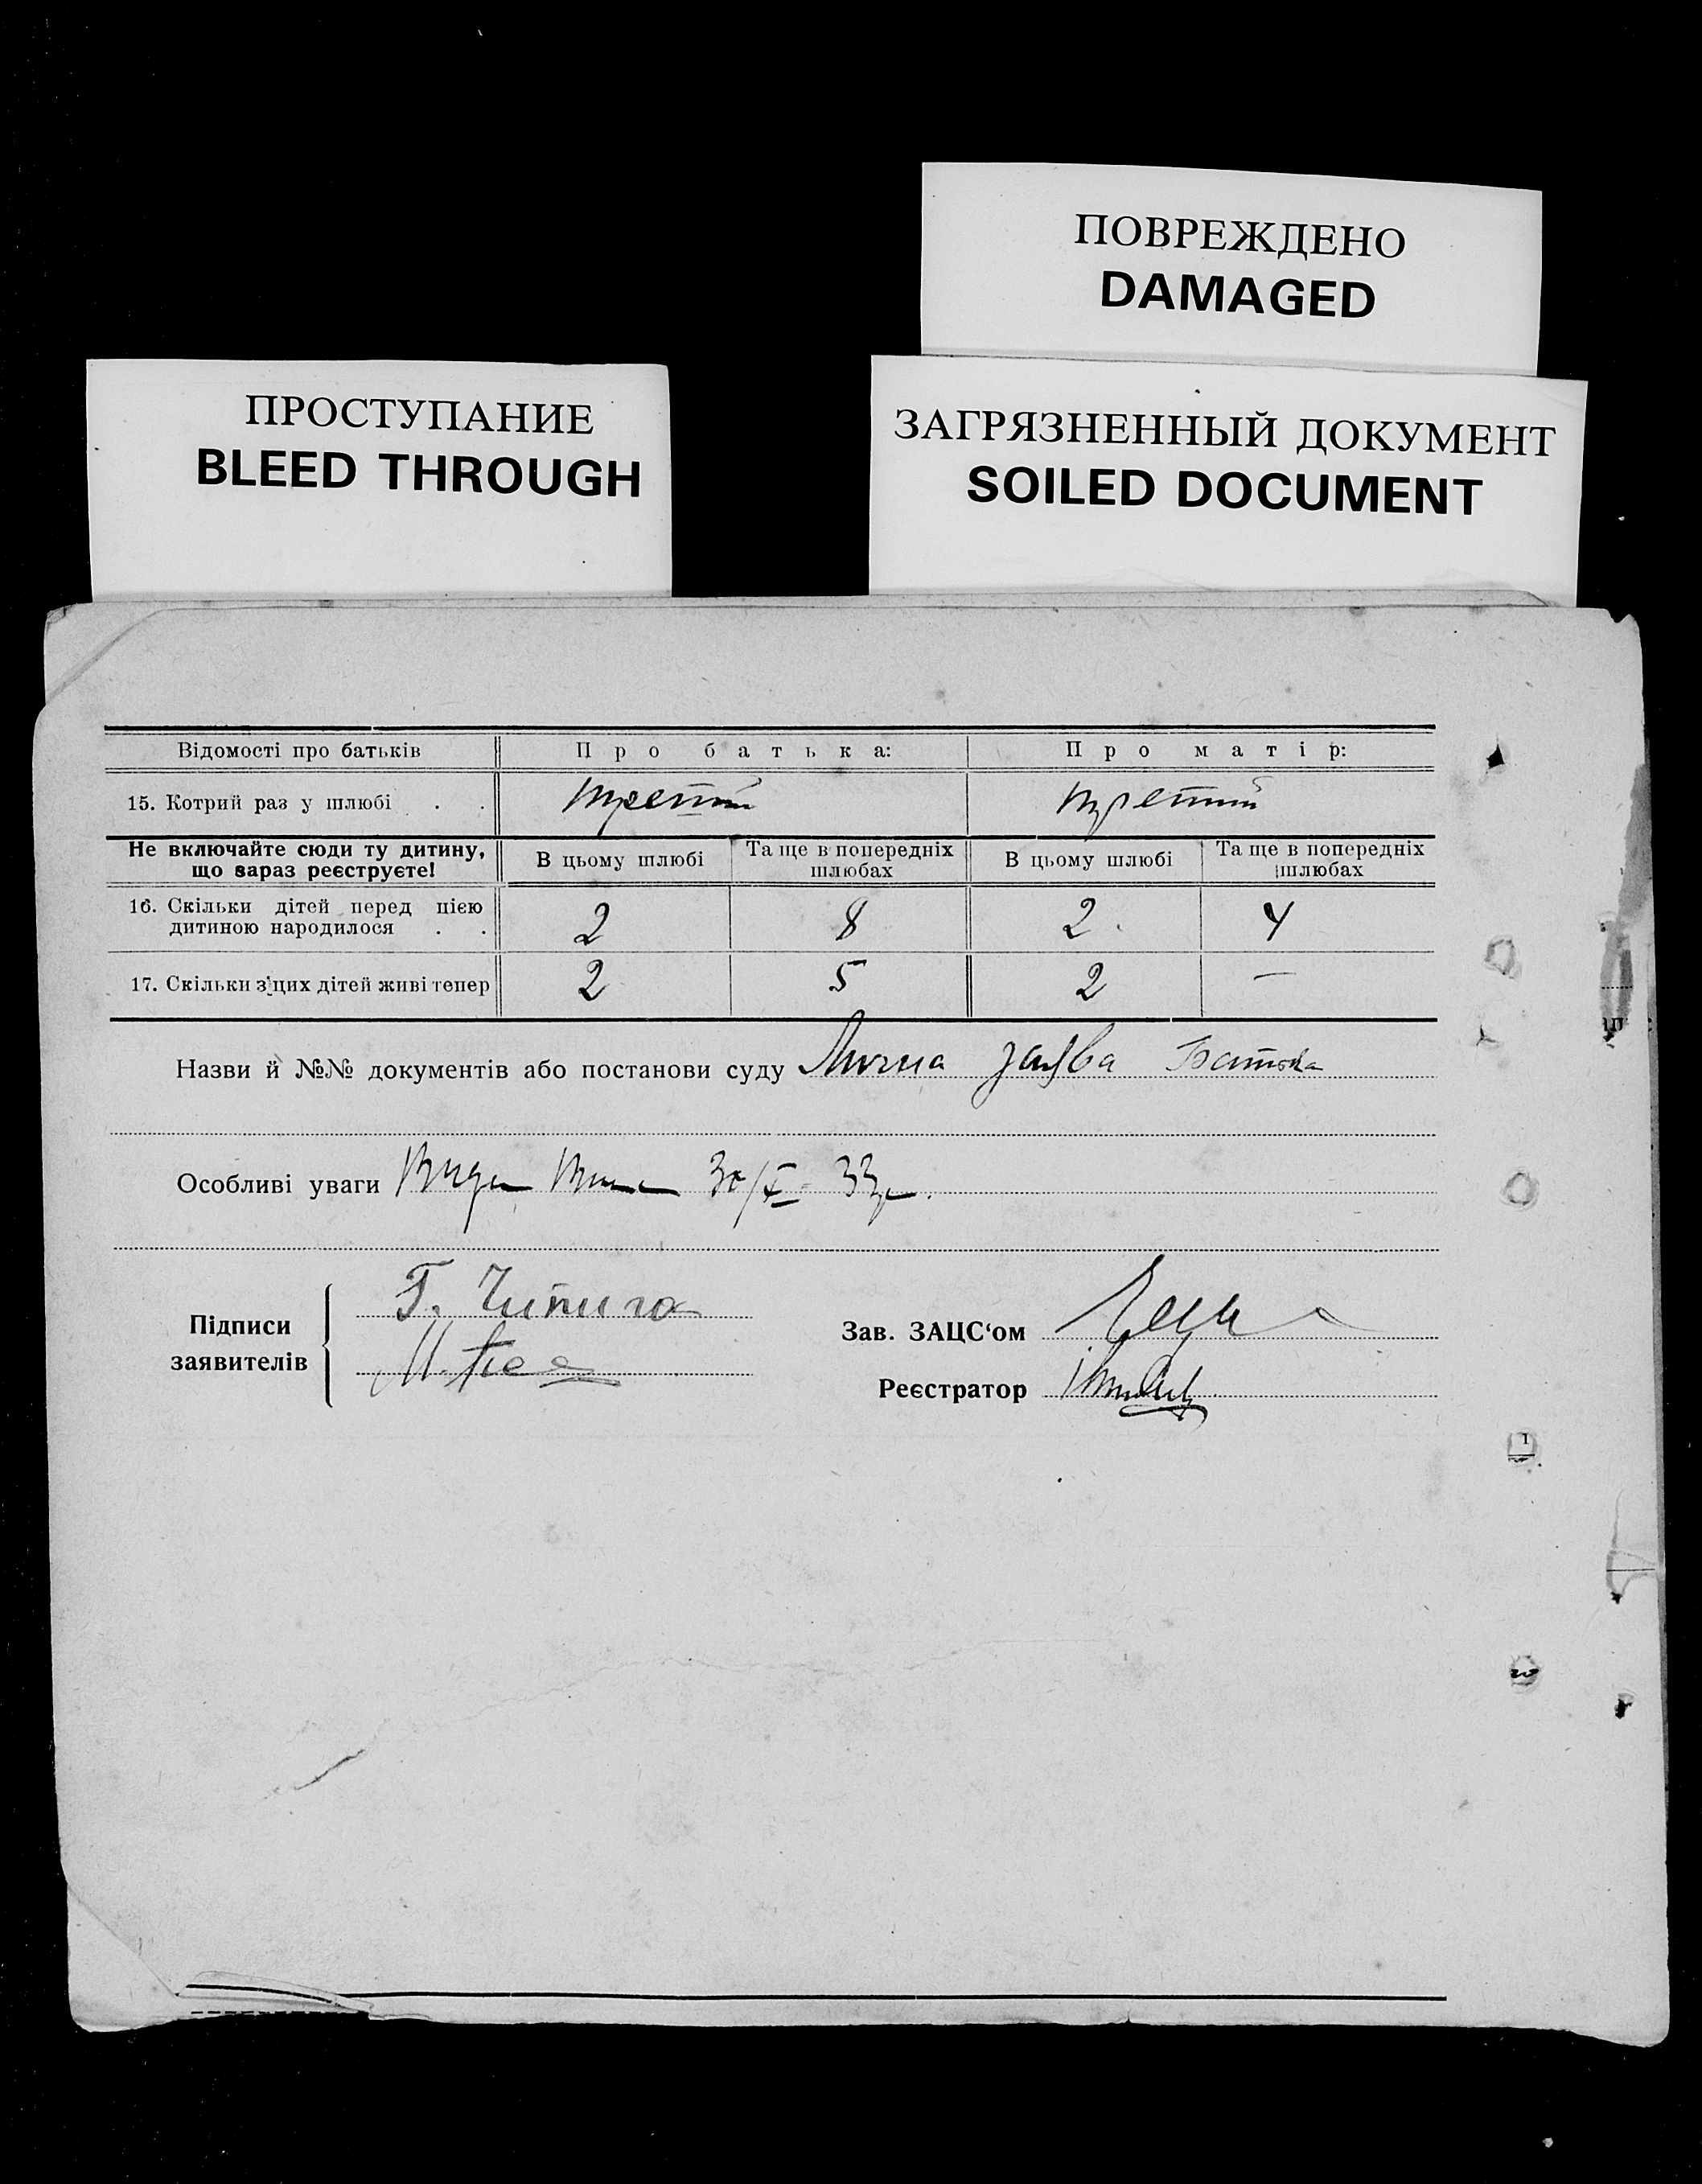 ПОВРЕЖДЕНО
DAMAGED
ПРОСТУПАНИЕ
BLEED THROUGH
ЗАГРЯЗНЕННЫЙ ДОКУМЕНТ
SOILED DOCUMENT
Відомості про батьків Про батька: Про матір:
15. Котрий раз у шлюбі . . третий третий
Не включайте сюди ту дитину, що зараз реєструєте! В цьому шлюбі Та ще в попередніх шлюбах В цьому шлюбі Та ще в попередніх шлюбах
16. Скільки дітей перед цією дитиною народилося . . 2 8 2 4
17. Скільки з цих дітей живі тепер 2 5 2 —
Назви й №№ документів або постанови суду Лична заява Батька
Особливі уваги 33
Підписи заявителів
Г. Чипига
М.
Зав. ЗАЦС‘ом
Реєстратор